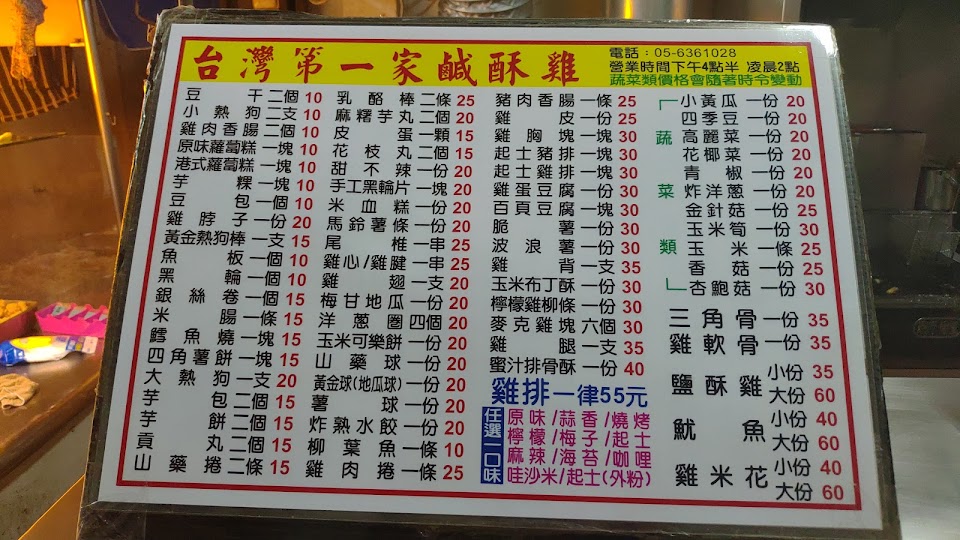 台灣第一家鹹酥雞
電話：05-6361028
營業時間下午4點半 凌晨2點
蔬菜類價格會隨著時令變動
豆干二個10
小熱狗二支10
雞肉香腸二個10
原味蘿蔔糕一塊10
港式蘿蔔糕一塊10
芋粿一塊10
豆包一個10
雞脖子一份20
黃金熱狗棒一支15
魚板一個10
黑輪一個10
銀絲卷一個15
米腸一條15
鱈魚燒一塊15
四角薯餅一塊15
大熱狗一支20
芋包二個15
芋餅二個15
貢丸二個15
山藥捲二條15
乳酪棒二條25
麻糬芋丸二個20
皮蛋一顆15
花枝丸二個15
甜不辣一份20
手工黑輪片一塊20
米血糕一份20
馬鈴薯條一份20
尾椎一串25
雞心/雞腱一串25
雞翅一支20
梅甘地瓜一份20
洋蔥圈四個20
玉米可樂餅一份20
山藥球一份20
黃金球(地瓜球)一份20
薯球一份20
炸熱水餃一份20
柳葉魚一條10
雞肉捲一條25
豬肉香腸一條25
雞皮一份25
雞胸塊一塊30
起士豬排一塊30
起士雞排一塊30
雞蛋豆腐一份30
百頁豆腐一塊30
脆薯一份30
波浪薯一份30
雞背一支35
玉米布丁酥一份30
檸檬雞柳條一份30
麥克雞塊六個30
雞腿一支35
蜜汁排骨酥一份40
雞排一律55元
任選一口味
原味/蒜香/燒烤
檸檬/梅子/起士
麻辣/海苔/咖哩
哇沙米/起士(外粉)
蔬菜類
小黃瓜一份20
四季豆一份20
高麗菜一份20
花椰菜一份20
青椒一份20
炸洋蔥一份20
金針菇一份25
玉米筍一份30
玉米一條25
香菇一份25
杏鮑菇一份30
三角骨一份35
雞軟骨一份35
鹽酥雞小份35
大份60
魷魚小份40
大份60
雞米花小份40
大份60